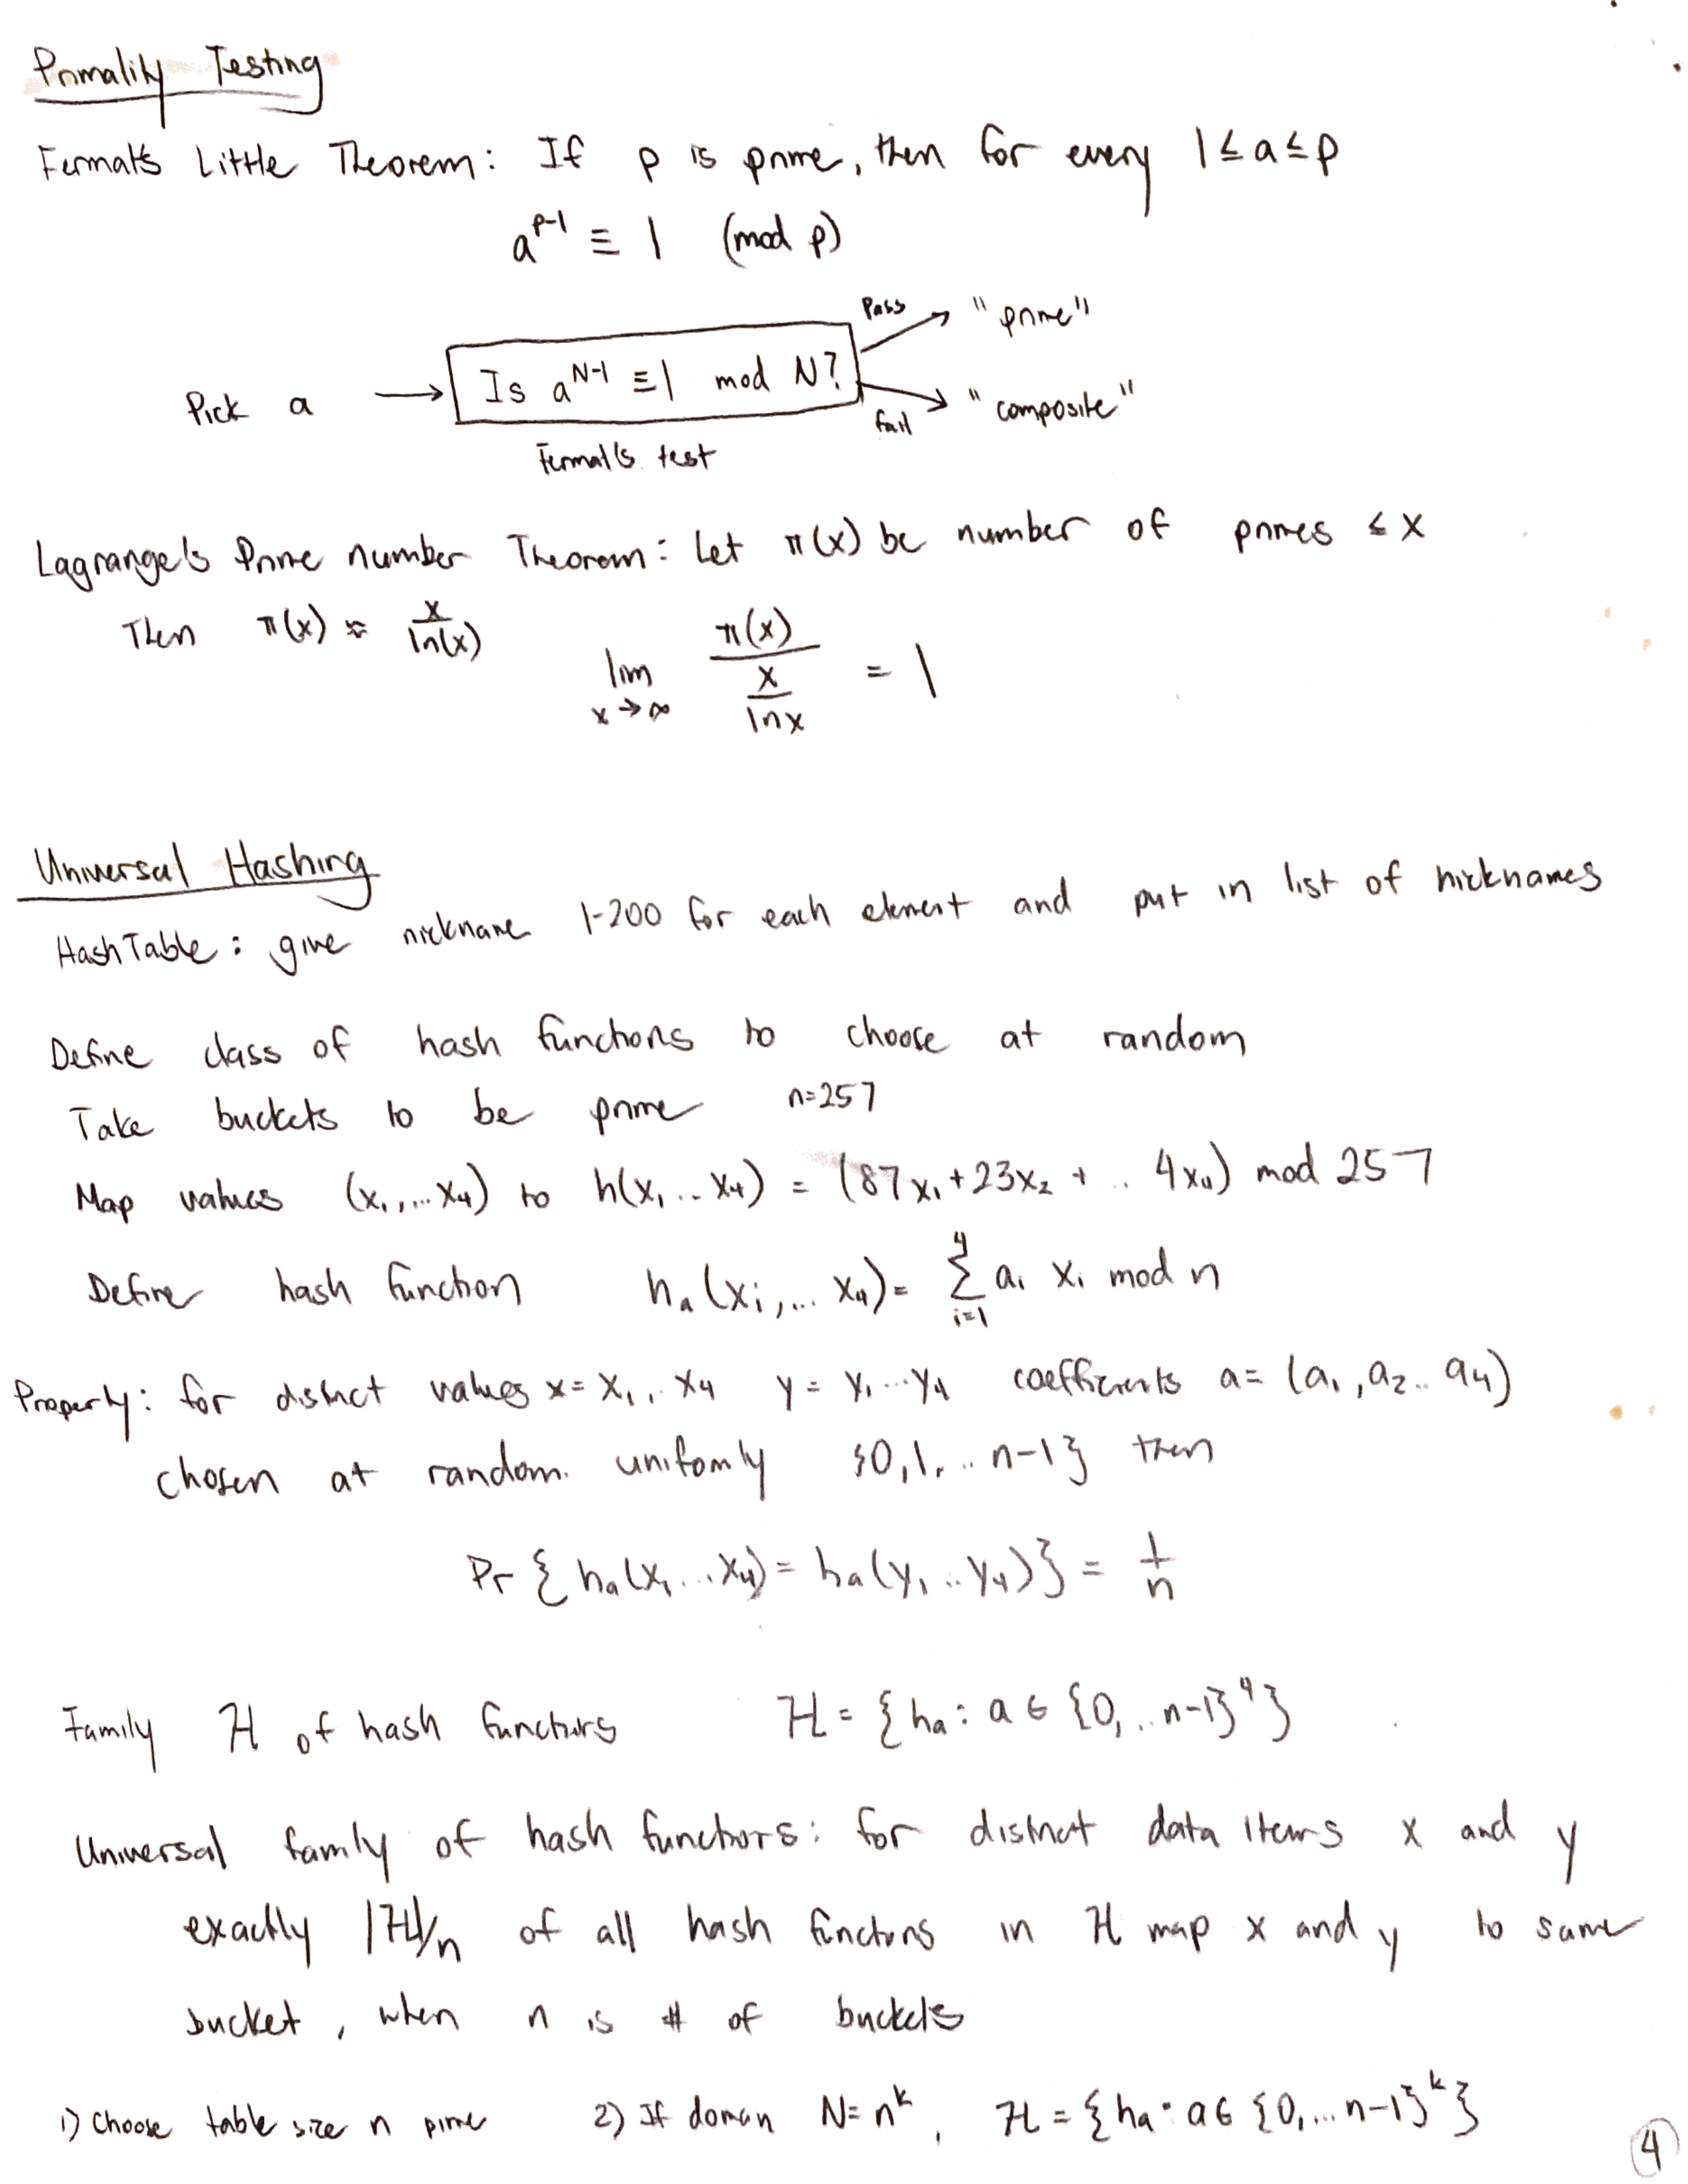 Primality Testing
Fermat's Little Theorem: If p is prime, then for every 1 ≤ a ≤ p
a^{p-1} ≡ 1 (mod p)
Pass "prime"
Pick a → Is a^{N-1} ≡ 1 mod N?
fail "composite"
Fermat's test
Lagrange's Prime number Theorem: Let π(x) be number of primes ≤ x
Then π(x) ≈ x/ln(x) lim x→∞ π(x)/(x/ln x) = 1
Universal Hashing
Hash Table: give nickname 1-200 for each element and put in list of nicknames
Define class of hash functions to choose at random
Take buckets to be prime n=257
Map values (x₁,... x₄) to h(x₁ .. x₄) = (87x₁ + 23x₂ + .. 4x₄) mod 257
Define hash function hₐ(xᵢ,... x₄) = Σ_{i=1}^{4} aᵢ xᵢ mod n
Property: for distinct values x = x₁.. x₄ y = y₁...y₄ coefficients a = (a₁, a₂.. a₄)
chosen at random uniformly {0,1,... n-1} then
Pr { hₐ(x₁...x₄) = hₐ(y₁..y₄)} = 1/n
Family ℋ of hash functions ℋ = { hₐ : a ∈ {0,..n-1}⁴ }
Universal family of hash functions: for distinct data items x and y
exactly |ℋ|/n of all hash functions in ℋ map x and y to same
bucket, when n is # of buckets
1) Choose table size n prime 2) If domain N = n^k, ℋ = { hₐ : a ∈ {0,... n-1}^k }
4